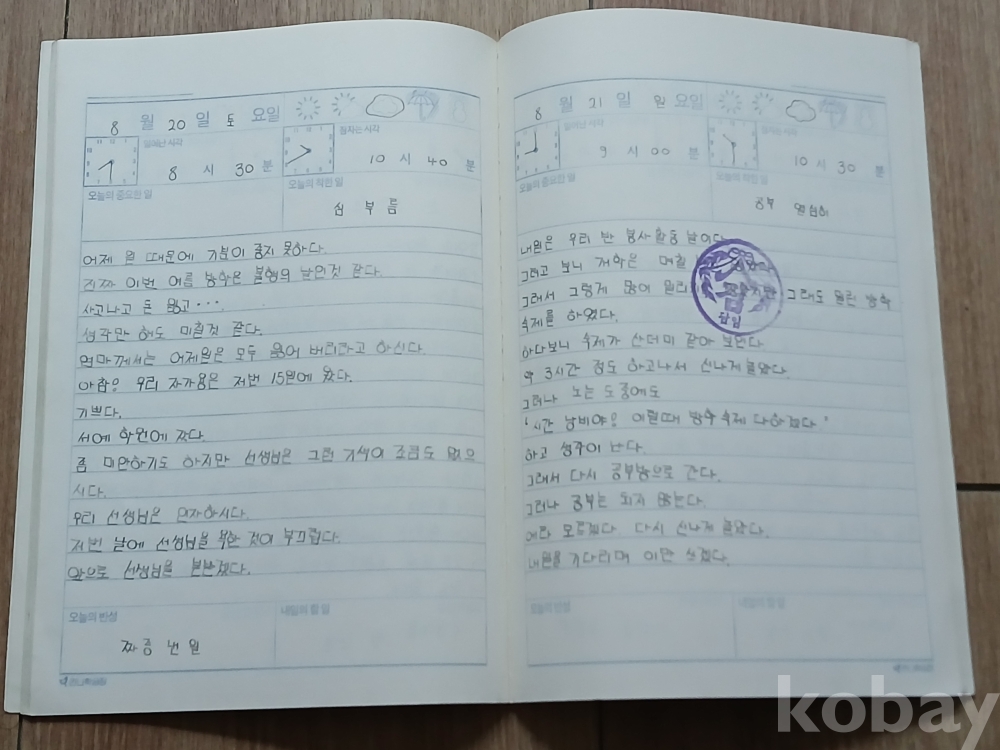 8 월 20 일 토 요일
일어난 시각
8 시 30 분
잠자는 시각
10 시 40 분
오늘의 중요한 일
오늘의 착한 일
심부름
어제 일 때문에 기분이 좋지 못하다.
진짜 이번 여름 방학은 불행의 날인것 같다.
사고나고 돈 잃고···
생각만 해도 미칠것 같다.
엄마께서는 어제일은 모두 잃어 버리라고 하신다.
아참! 우리 자가용은 저번 15일에 왔다.
기쁘다.
서예 학원에 갔다.
좀 미안하기도 하지만 선생님은 그런 기색이 조금도 없으
시다.
우리 선생님은 인자하시다.
저번 날에 선생님을 욕한 것이 부끄럽다.
앞으로 선생님을 본받겠다.
오늘의 반성
짜증낸일
내일의 할 일
8 월 21 일 일 요일
일어난 시각
9 시 00 분
잠자는 시각
10 시 30 분
오늘의 중요한 일
오늘의 착한 일
공부 열심히
내일은 우리 반 봉사활동 날이다.
그러고 보니 개학은 며칠
그래서 그렇게 많이 밀리 그래도 밀린 방학
숙제를 하였다.
담임
하다보니 숙제가 산더미 같아 보인다.
약 3시간 정도 하고나서 신나게 놀았다.
그러나 노는 도중에도
'시간 낭비야! 이럴때 방학숙제 다하겠다'
하고 생각이 난다.
그래서 다시 공부방으로 간다.
그러나 공부는 되지 않는다.
에라 모르겠다. 다시 신나게 놀았다.
내일을 기다리며 이만 쓰겠다.
오늘의 반성
내일의 할 일
kobay